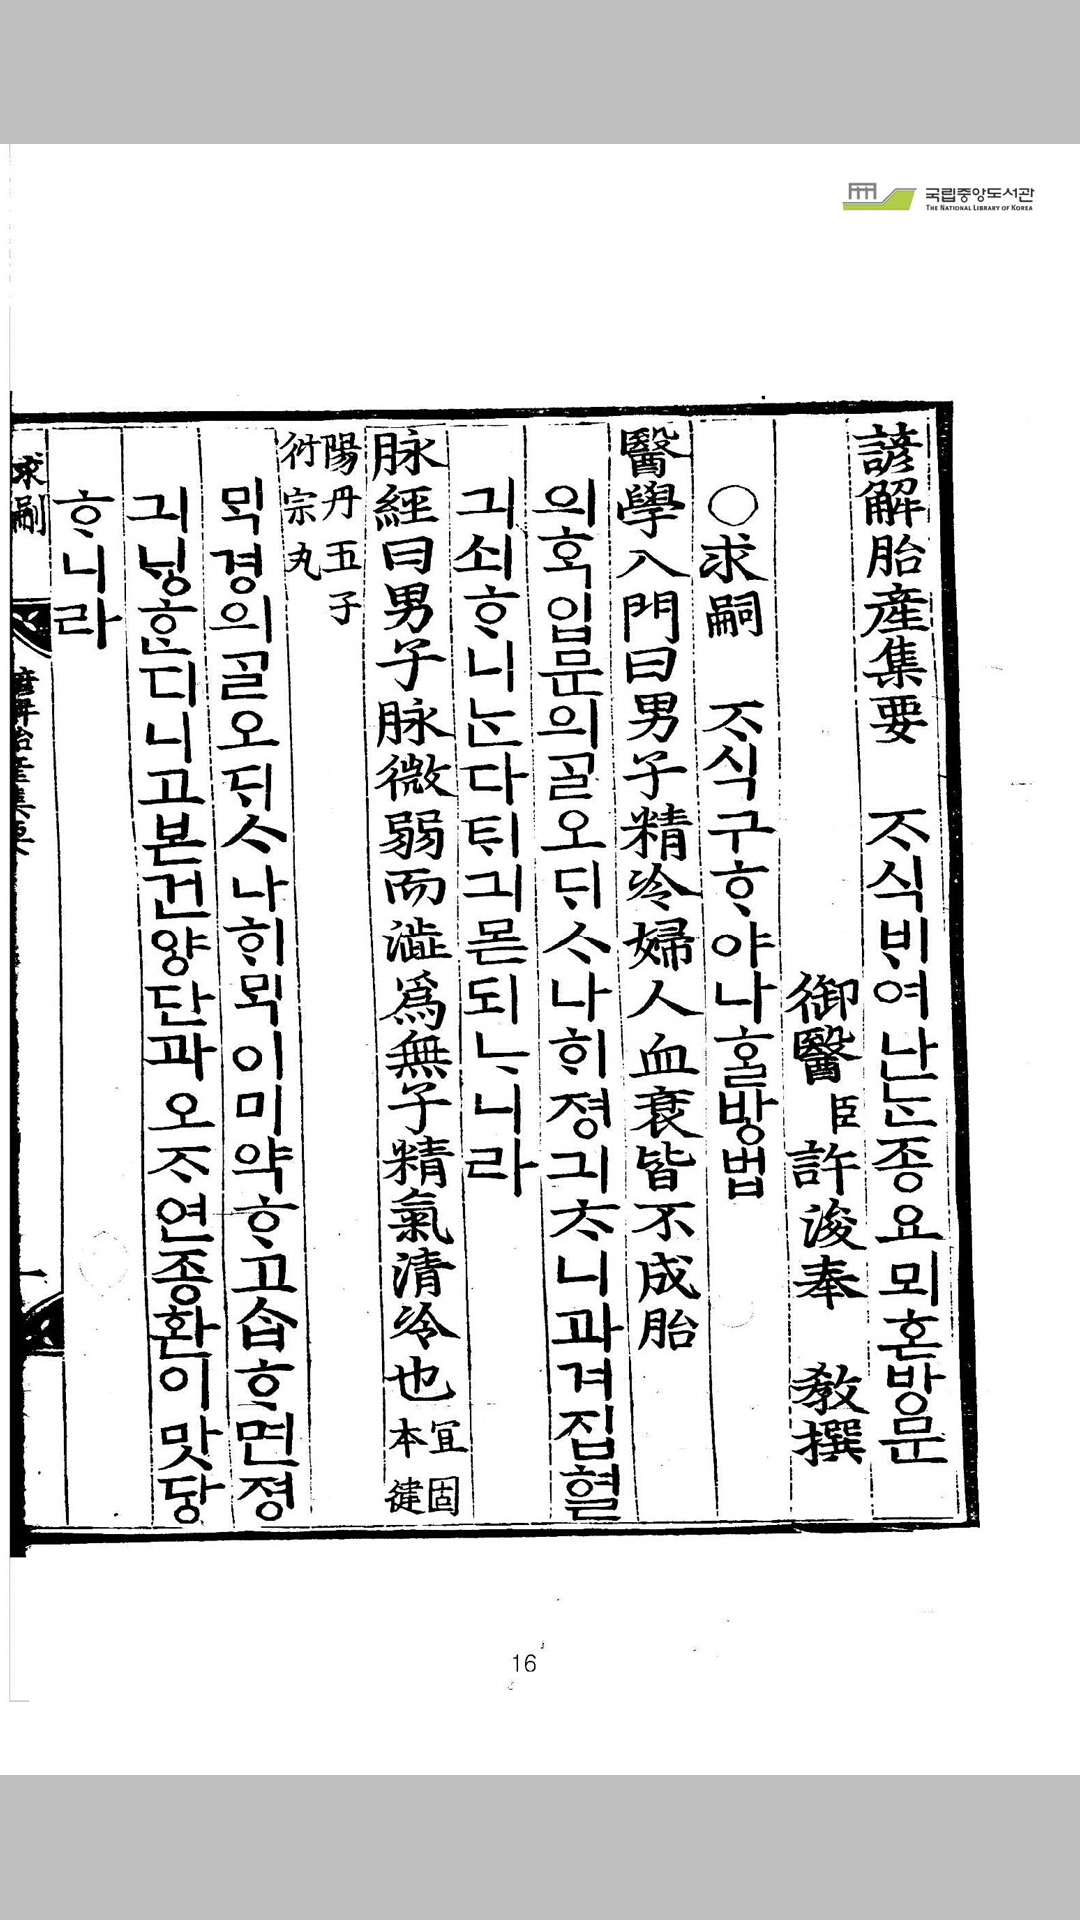 국립중앙도서관
THE NATIONAL LIBRARY OF KOREA
諺解胎産集要 ᄌᆞ식ᄇᆡ여난ᄂᆞᆫ종요뫼혼방문
御醫臣許浚奉 敎撰
○求嗣 ᄌᆞ식구ᄒᆞ야나홀방법
醫學入門曰男子精冷婦人血衰皆不成胎
의ᄒᆞᆨ입문의ᄀᆞᆯ오ᄃᆡᄉᆞ나ᄒᆡ졍긔ᄎᆞ니과겨집혈
긔쇠ᄒᆞ니ᄂᆞᆫ다ᄐᆡ긔몯되ᄂᆞ니라
脉經曰男子脉微弱而澁爲無子精氣清冷也宜固本健
陽丹五子衍宗丸
ᄆᆡᆨ경의ᄀᆞᆯ오ᄃᆡᄉᆞ나ᄒᆡᄆᆡᆨ이미약ᄒᆞ고습ᄒᆞ면졍
긔ᄂᆡᆼᄒᆞᆫ디니고본건양단과오ᄌᆞ연종환이맛당
ᄒᆞ니라
求嗣
諺解胎産集要
一
16